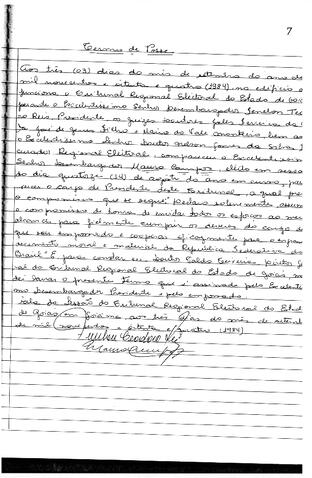 7
Termo de Posse
Aos três (03) dias do mês de setembro do ano de
mil novecentos e oitenta e quatro (1984) no edifício o
funciona o Tribunal Regional Eleitoral do Estado de Goi
perante o Excelentíssimo Senhor Desembargador Fenelon Teo
ro Reis, Presidente, os juízes doutores
José de Jesus Filho e do Vale Monteiro, bem as
o Excelentíssimo Senhor doutor Nelson Gomes da Silva,
curador Regional Eleitoral, compareceu o Excelentíssim
Senhor Desembargador Mauro Campos, eleito em sessão
do dia quatorze (14) de agosto do ano em curso, para
o cargo de Presidente deste Tribunal, o qual pre
o compromisso que se segue: Declaro solenemente assum
o compromisso de honra de envidar todos os esforços ao meu
alcance para fielmente cumprir os deveres do cargo de
que sou empossado e cooperar eficazmente para o
moral e material da República Federativa do
Brasil". E para constar eu, doutor
ral do Tribunal Regional Eleitoral do Estado de Goiás, m
dei lavrar o presente Termo que é assinado pelo Excelentís
simo Desembargador Presidente e pelo empossado.
Sala de Sessão do Tribunal Regional Eleitoral do Estad
de Goiás, em Goiânia, aos três dias do mês de setemb
de mil novecentos e oitenta e quatro (1984)